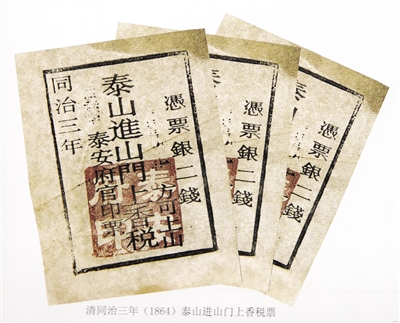 憑票銀二錢
方可上山
泰山進山門上香税
泰安府官印票
同治三年
憑票銀二錢
憑票銀二錢
清同治三年（1864）泰山进山门上香税票